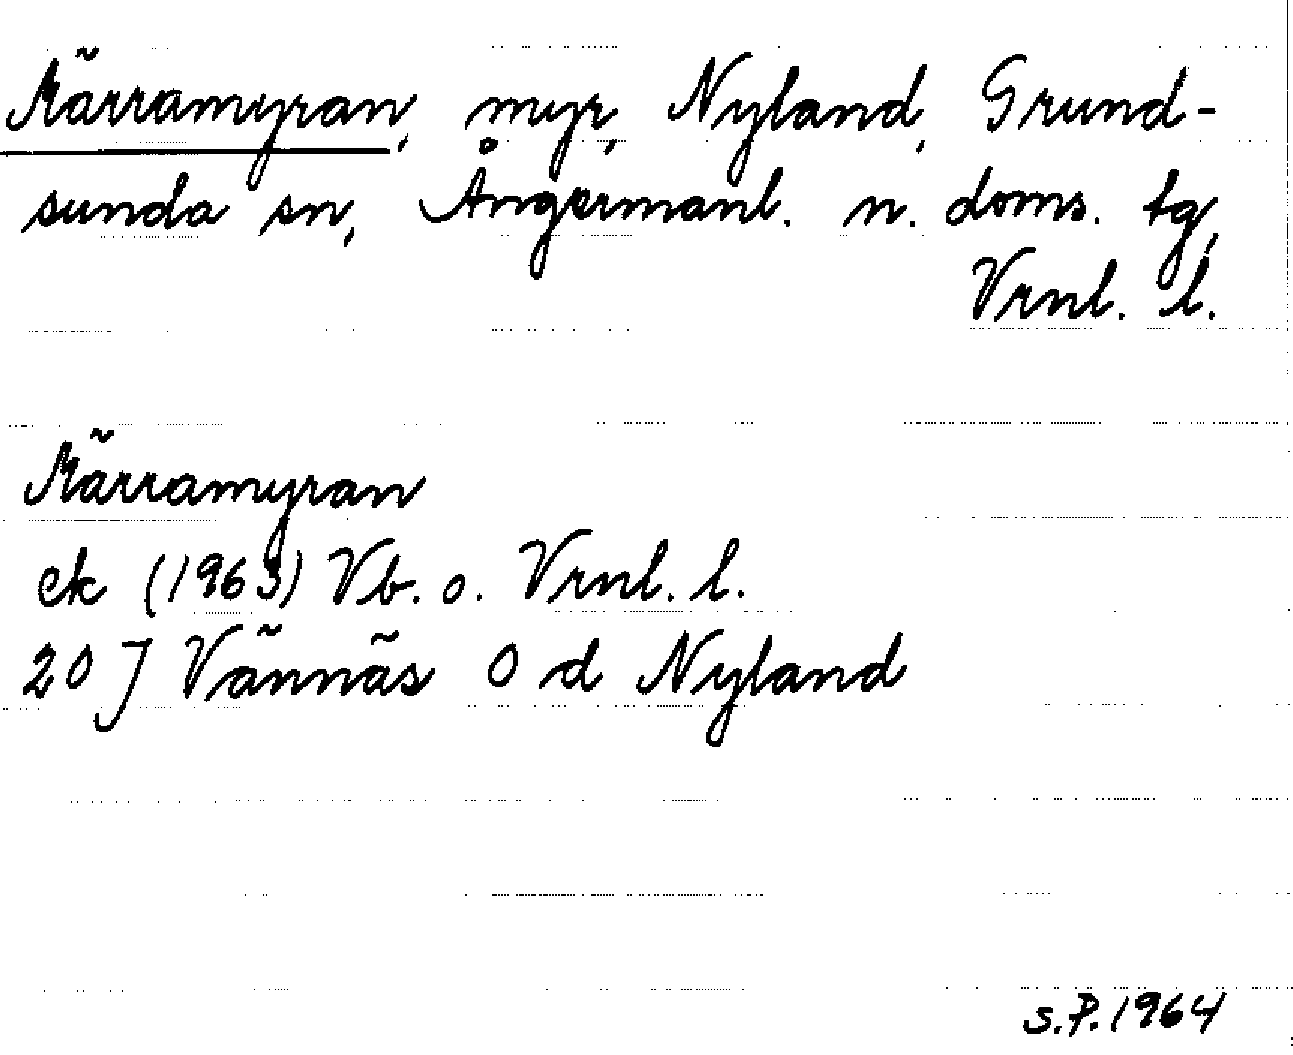 Märramyran, myr, Nyland, Grund-
sunda sn, Ångermanl. n. doms. tg,
Vrnl. l.
Märramyran
ek (1963) Vb. o. Vrnl. l.
20 J Vännäs O d Nyland
S.P. 1964